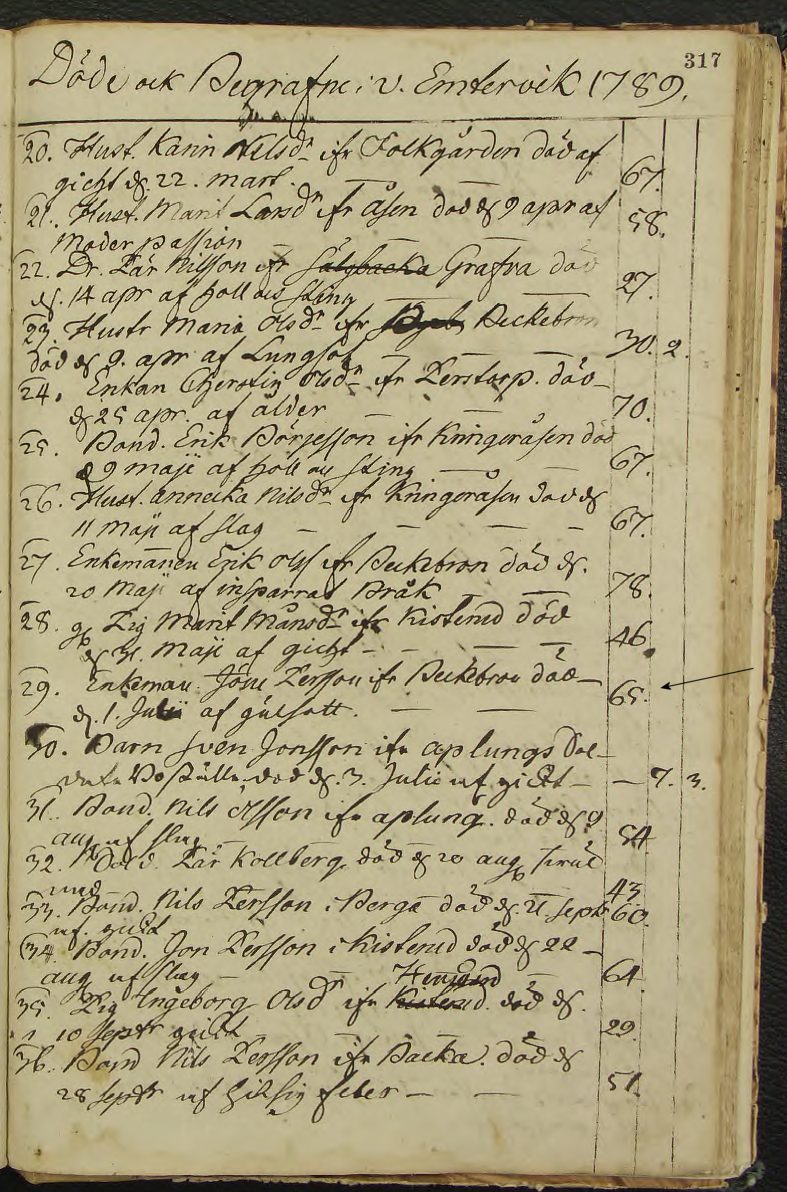 317
Döde ock Begrafne i v. Emtervik 1789.
20. Hust. Karin Nilsdr ifr Folkgården död af
gicht d. 22. mart. 67.
21. Hust. Marit Larsdr ifr Åsen död d 9 apr af
Moder passion 58.
22. Dr. Pär Nilsson ifr Sälgbacka Grafva död
d. 14 apr af håll ock sting 27.
23. Hustr Maria Olsdr ifr Beckebron
död d 9. apr af Lungsot 30. 2.
24. Enkan Cherstin Olsdr ifr Perstorp. död
d 25 apr. af ålder 70.
25. Bond. Erik Börjesson ifr Kringeråsen död
d 9 maji af håll ock sting 67.
26. Hust. Annicka Nilsdr ifr Kringeråsen död d
11 Maji af slag 67.
27. Enkemannen Erik Olss ifr Beckebron död d.
20 Maji af insparrat Bråk 78.
28. Pig Marit Månsdr ifr Kisterud död
d 31. Maji af gicht 46
29. Enkeman Jöns Persson ifr Beckebron död
d. 1. Julii af gulsott. 65.
30. Barn Sven Jonsson ifr aplungs
död d. 3. Julii af gicht 7. 3.
31. Bond. Nils Olsson ifr aplung. död d 9
aug af slag 54.
32. Pär Kollberg död d 20 aug
43
33. Bond. Nils Persson i Berga död d. 21 septr 60.
af gickt
34. Bond. Jon Persson i Kisterud död d 22
aug af slag 64.
35. Pig Ingeborg Olsdr ifr Kisterud. död d.
10 Septr gickt 29.
36. Bond Nils Persson ifr Backa. död d
28 septr af hitsig feber 51.